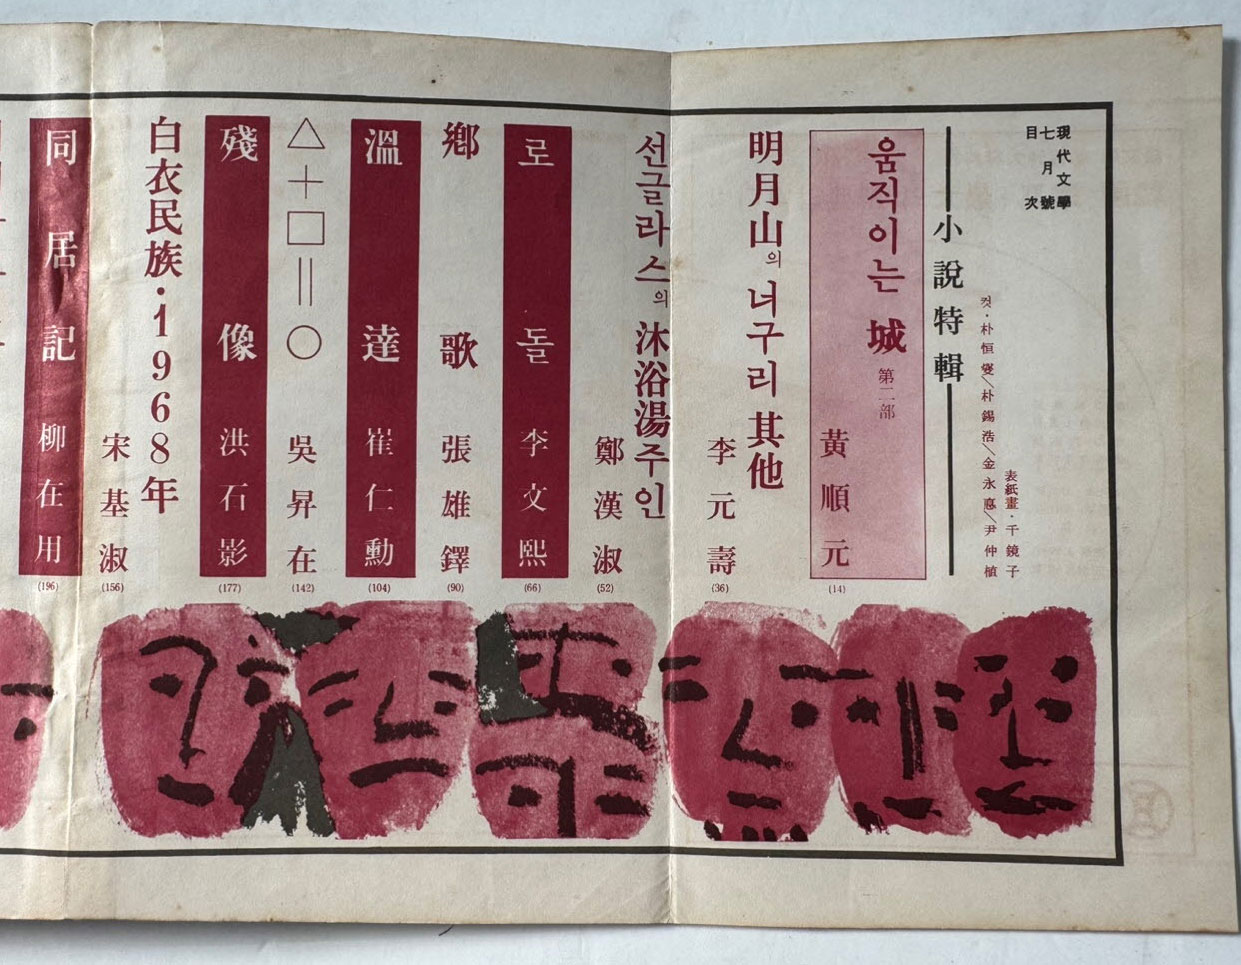 現代文學
七月號
目次
表紙畫·千鏡子
컷·朴恒燮\朴錫浩\金永悳\尹仲植
小說特輯
움직이는 城 第二部
黃順元
(14)
明月山의 너구리 其他
李元壽
(36)
선글라스의 沐浴湯주인
鄭漢淑
(52)
로돌 李文熙
(66)
鄕歌 張雄鐸
(90)
溫達 崔仁勳
(104)
△＋□∥○ 吳昇在
(142)
殘像 洪石影
(177)
白衣民族·1968年
宋基淑
(156)
同居記 柳在用
(196)